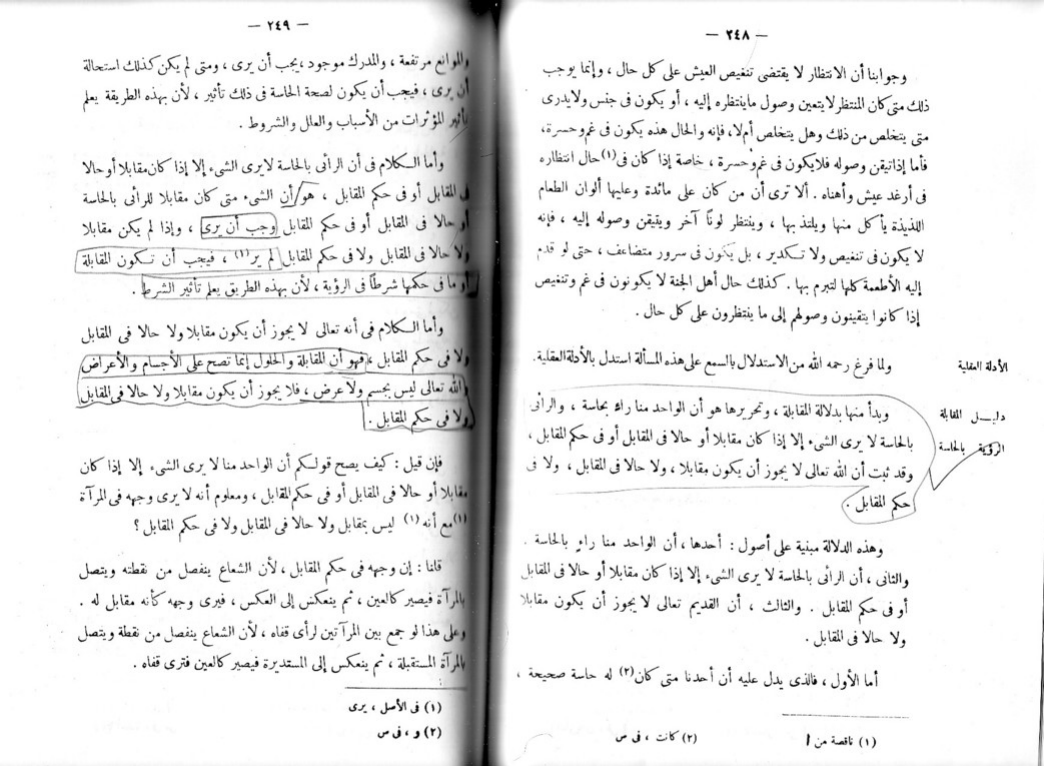 — ٢٤٨ —
وجوابنا أن الانتظار لا يقتضى تنغيص العيش على كل حال ، وإنما يوجب
ذلك متى كان المنتظر لا يتعين وصول ما ينتظره إليه ، أو يكون فى حبس ولا يدرى
متى يتخلص من ذلك وهل يتخلص أم لا، فإنه والحال هذه يكون فى غم وحسرة،
فأما إذا تيقن وصوله فلا يكون فى غم وحسرة ، خاصة إذا كان فى (١) حال انتظاره
فى أرغد عيش وأهناه . ألا ترى أن من كان على مائدة وعليها ألوان الطعام
اللذيذة يأكل منها ويلتذ بها ، وينتظر لوناً آخر ويتيقن وصوله إليه ، فإنه
لا يكون فى تنغيص ولا تكدير ، بل يكون فى سرور متضاعف ، حتى لو قدم
إليه الأطعمة كلها لتبرم بها . كذلك حال أهل الجنة لا يكونون فى غم وتنغيص
إذا كانوا يتيقنون وصولهم إلى ما ينتظرون على كل حال .
الأدلة العقلية
ولما فرغ رحمه الله من الاستدلال بالسمع على هذه المسألة استدل بالأدلة العقلية.
دليل المقابلة
الرؤية بالحاسة
وبدأ منها بدلالة المقابلة ، وتحريرها هو أن الواحد منا راء بحاسة ، والرائى
بالحاسة لا يرى الشىء إلا إذا كان مقابلا أو حالا فى المقابل أو فى حكم المقابل ،
وقد ثبت أن الله تعالى لا يجوز أن يكون مقابلا، ولا حالا فى المقابل ، ولا فى
حكم المقابل .
وهذه الدلالة مبنية على أصول : أحدها ، أن الواحد منا راءٍ بالحاسة .
والثانى ، أن الرائى بالحاسة لا يرى الشىء إلا إذا كان مقابلا أو حالا فى المقابل
أو فى حكم المقابل . والثالث ، أن القديم تعالى لا يجوز أن يكون مقابلا
ولا حالا فى المقابل .
أما الأول ، فالذى يدل عليه أن أحدنا متى كان (٢) له حاسة صحيحة ،
(١) ناقصة من ا
(٢) كانت ، فى ص
— ٢٤٩ —
والموانع مرتفعة ، والمدرك موجود ، يجب أن يرى ، ومتى لم يكن كذلك استحالة
أن يرى ، فيجب أن يكون لصحة الحاسة فى ذلك تأثير ، لأن بهذه الطريقة يعلم
تأثير المؤثرات من الأسباب والعلل والشروط .
وأما الكلام فى أن الرائى بالحاسة لا يرى الشىء إلا إذا كان مقابلا أو حالا
فى المقابل أو فى حكم المقابل ، هو أن الشىء متى كان مقابلا للرائى بالحاسة
أو حالا فى المقابل أو فى حكم المقابل وجب أن يرى ، وإذا لم يكن مقابلا
ولا حالا فى المقابل ولا فى حكم المقابل لم ير (١) ، فيجب أن تكون المقابلة
أو ما فى حكمها شرطاً فى الرؤية ، لأن بهذه الطريق يعلم تأثير الشرط .
وأما الكلام فى أنه تعالى لا يجوز أن يكون مقابلا ولا حالا فى المقابل
ولا فى حكم المقابل ، فهو أن المقابلة والحلول إنما تصح على الأجسام والأعراض
والله تعالى ليس بجسم ولا عرض ، فلا يجوز أن يكون مقابلا ولا حالا فى المقابل
ولا فى حكم المقابل .
فإن قيل : كيف يصح قولكم أن الواحد منا لا يرى الشىء إلا إذا كان
مقابلا أو حالا فى المقابل أو فى حكم المقابل ، ومعلوم أنه لا يرى وجهه فى المرآة
(١) مع أنه (١) ليس بمقابل ولا حالا فى المقابل ولا فى حكم المقابل ؟
قلنا : إن وجهه فى حكم المقابل ، لأن الشعاع ينفصل من نقطته ويتصل
بالمرآة فيصير كالعين ، ثم ينعكس إلى العكس ، فيرى وجهه كأنه مقابل له .
وعلى هذا لو جمع بين المرآتين لرأى قفاه ، لأن الشعاع ينفصل من نقطة ويتصل
بالمرآة المستقبلة ، ثم ينعكس إلى المستديرة فيصير كالعين فترى قفاه .
(١) فى الأصل ، يرى
(٢) و ، فى س